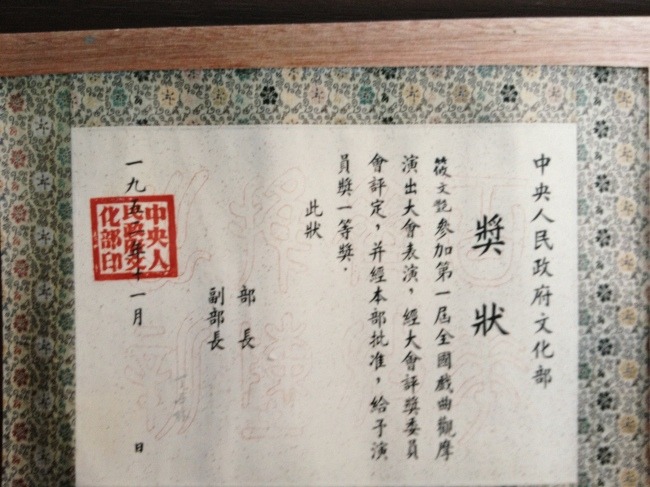 中央人民政府文化部
獎狀
筱文艷參加第一屆全國戲曲觀摩
演出大會表演，經大會評獎委員
會評定，并經本部批准，給予演
員獎一等獎．
此狀
部長
副部長
一九五二年十一月 日
中央人
民政府文
化部印